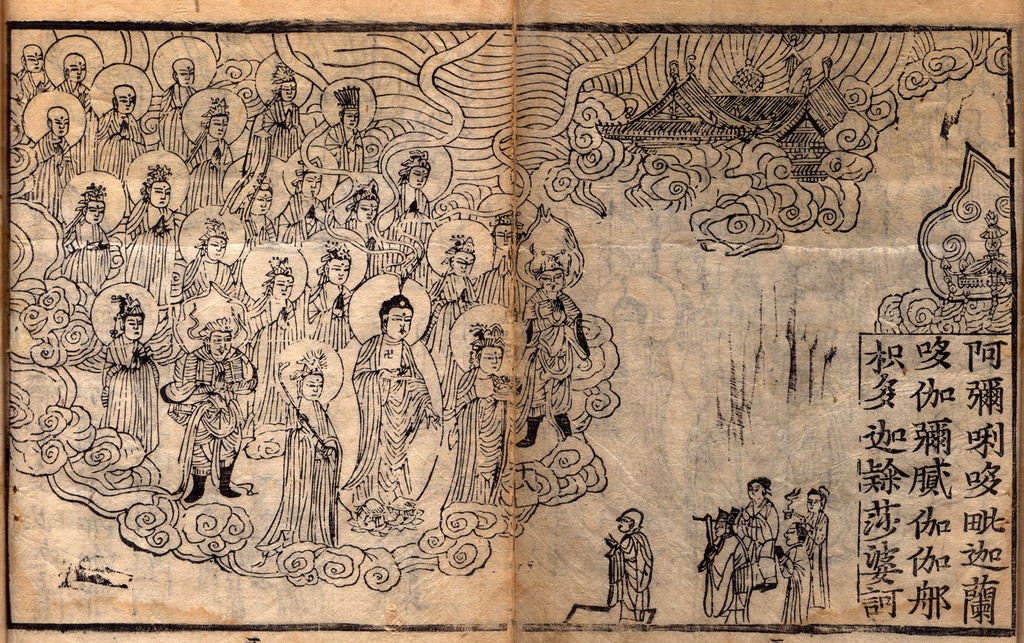 阿彌唎哆毗迦蘭
哆伽彌膩伽伽那
枳多迦隸莎婆訶
卍